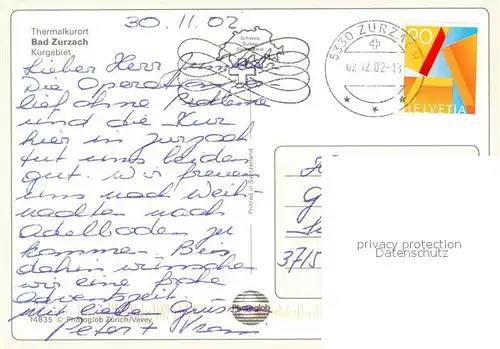 30.11.02
Thermalkurort
Bad Zurzach
Kurgebiet
Lieber Herr
Die Operationen
lief ohne Probleme
und die Kur
hier in Zurzach
tut uns beiden
gut. Wir freuen
uns nach Weih-
nachten nach
Adelboden zu
kommen. Bis
dahin wünschen
wir eine frohe
Adventszeit.
Mit liebe Grüsse
Peter +
14835 © Photoglob Zürich/Vevey
Photoglob
Printed in Switzerland
5330 ZURZACH
02.12.02-18
90
HELVETIA
3715
privacy protection
Datenschutz